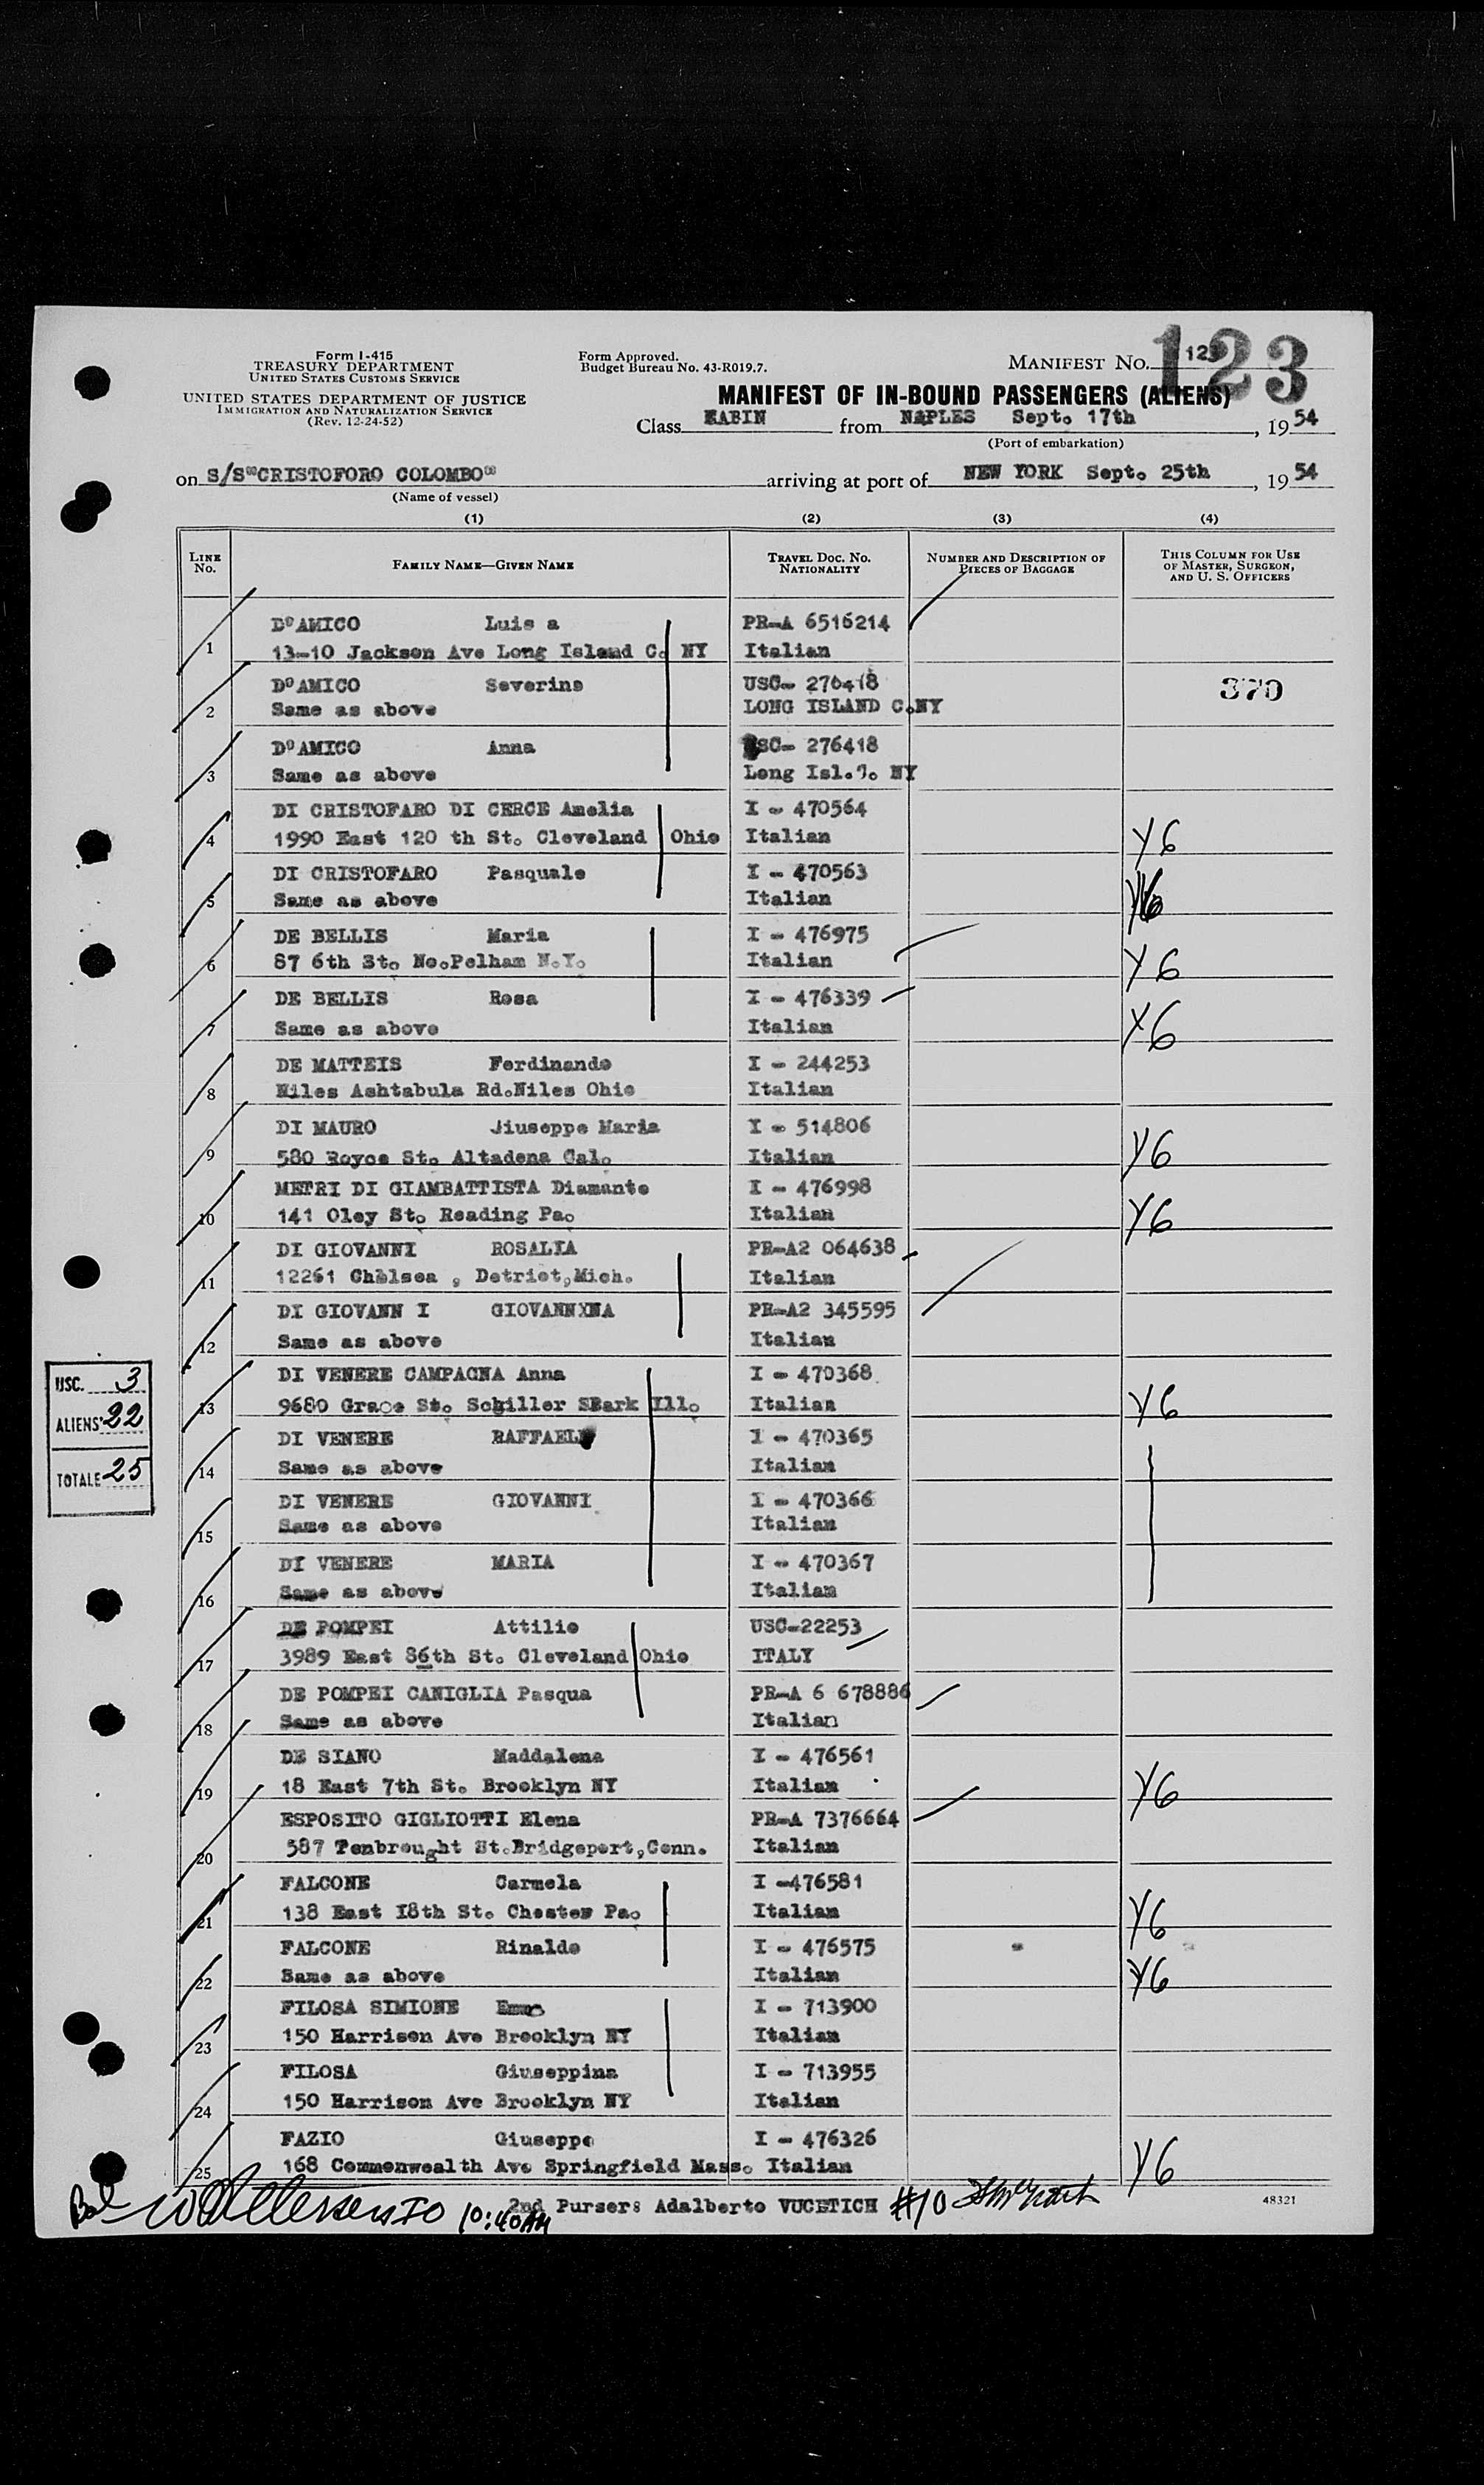 Form I-415
TREASURY DEPARTMENT
UNITED STATES CUSTOMS SERVICE
UNITED STATES DEPARTMENT OF JUSTICE
IMMIGRATION AND NATURALIZATION SERVICE
(Rev. 12-24-52)
Form Approved.
Budget Bureau No. 43-R019.7.
MANIFEST NO. 123
123
MANIFEST OF IN-BOUND PASSENGERS (ALIENS)
Class KABIN from NAPLES Sept. 17th, 1954
(Port of embarkation)
on S/S"CRISTOFORO COLOMBO" arriving at port of NEW YORK Sept. 25th, 1954
(Name of vessel)
(1) (2) (3) (4)
LINE No. FAMILY NAME—GIVEN NAME TRAVEL DOC. NO. NATIONALITY NUMBER AND DESCRIPTION OF PIECES OF BAGGAGE THIS COLUMN FOR USE OF MASTER, SURGEON, AND U. S. OFFICERS
1 D'AMICO Luis a PR-A 6516214
13-10 Jackson Ave Long Island C. NY Italian
2 D'AMICO Severino USC- 276418 370
Same as above LONG ISLAND C.NY
3 D'AMICO Anna USC- 276418
Same as above Long Isl. NY
4 DI CRISTOFARO DI CERCE Amelia I - 470564
1990 East 120 th St. Cleveland Ohio Italian Y6
5 DI CRISTOFARO Pasquale I - 470563
Same as above Italian Y6
6 DE BELLIS Maria I - 476975
87 6th St. No.Pelham N.Y. Italian Y6
7 DE BELLIS Rosa I - 476339
Same as above Italian Y6
8 DE MATTEIS Ferdinando I - 244253
Niles Ashtabula Rd.Niles Ohio Italian
9 DI MAURO Jiuseppe Maria I - 514806
580 Royce St. Altadena Cal. Italian Y6
10 METRI DI GIAMBATTISTA Diamante I - 476998
141 Oley St. Reading Pa. Italian Y6
11 DI GIOVANNI ROSALIA PR-A2 064638
12261 Chelsea , Detriot,Mich. Italian
12 DI GIOVANN I GIOVANNXNA PR-A2 345595
Same as above Italian
13 DI VENERE CAMPAGNA Anna I - 470368
9680 Grace St. Schiller SPark Ill. Italian Y6
14 DI VENERE RAFFAELE I - 470365
Same as above Italian
15 DI VENERE GIOVANNI I - 470366
Same as above Italian
16 DI VENERE MARIA I - 470367
Same as above Italian
17 DE POMPEI Attilio USC-22253
3989 East 86th St. Cleveland Ohio ITALY
18 DE POMPEI CANIGLIA Pasqua PR-A 6 678886
Same as above Italian
19 DE SIANO Maddalena I - 476561
18 East 7th St. Brooklyn NY Italian Y6
20 ESPOSITO GIGLIOTTI Elena PR-A 7376664
587 Tenbrought St.Bridgeport,Conn. Italian
21 FALCONE Carmela I -476581
138 East I8th St. Chester Pa. Italian Y6
22 FALCONE Rinaldo I - 476575
Same as above Italian Y6
23 FILOSA SIMIONE I - 713900
150 Harrison Ave Brooklyn NY Italian
24 FILOSA Giuseppina I - 713955
150 Harrison Ave Brooklyn NY Italian
25 FAZIO Giuseppe I - 476326
168 Commonwealth Ave Springfield Mass. Italian Y6
USC. 3
ALIENS 22
TOTALE 25
10:40AM 2nd Purser: Adalberto VUCETICH #10
48321